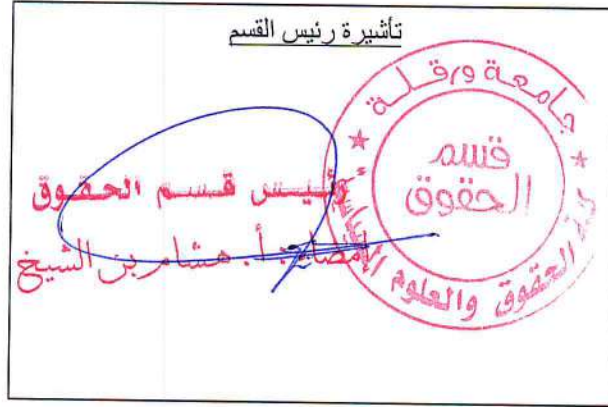 تأشيرة رئيس القسم
جامعة ورقلة
قسم
الحقوق
الحقوق والعلوم السياسية
رئيس قسم الحقوق
إمضاء: أ. هشام بن الشيخ